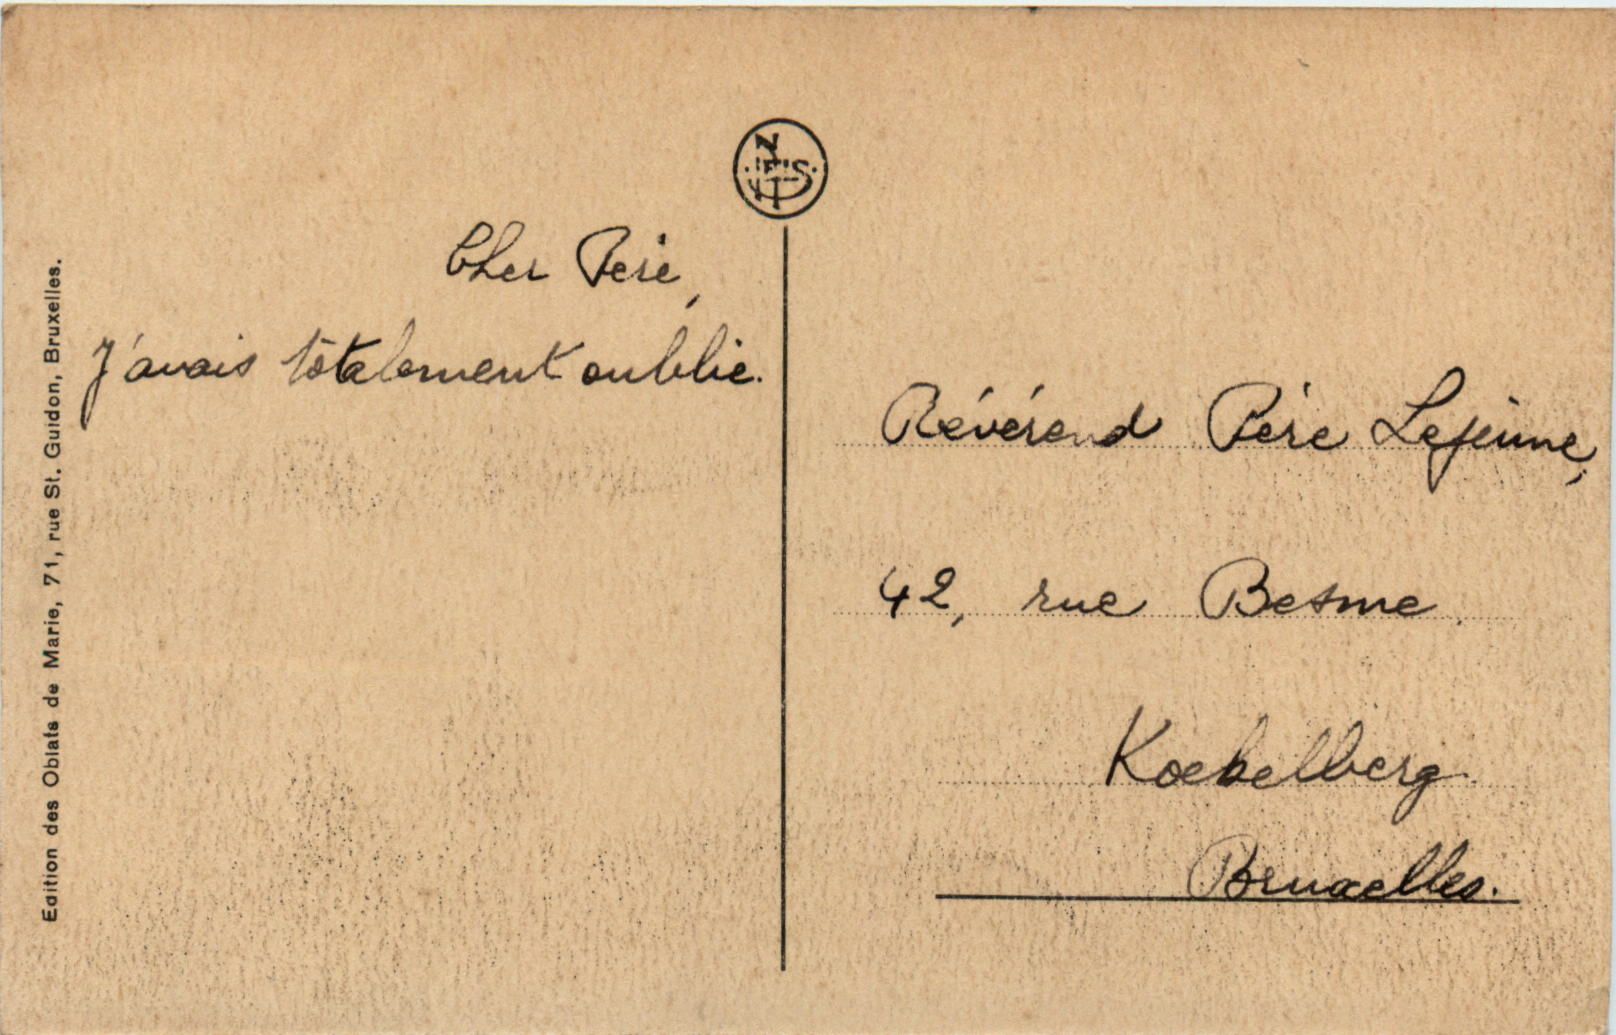 Edition des Oblats de Marie, 71, rue St. Guidon, Bruxelles.
Cher Père,
J'avais tôtalement oublié.
Révérend Père Lejeune,
42, rue Besme.
Koekelberg
Bruxelles.